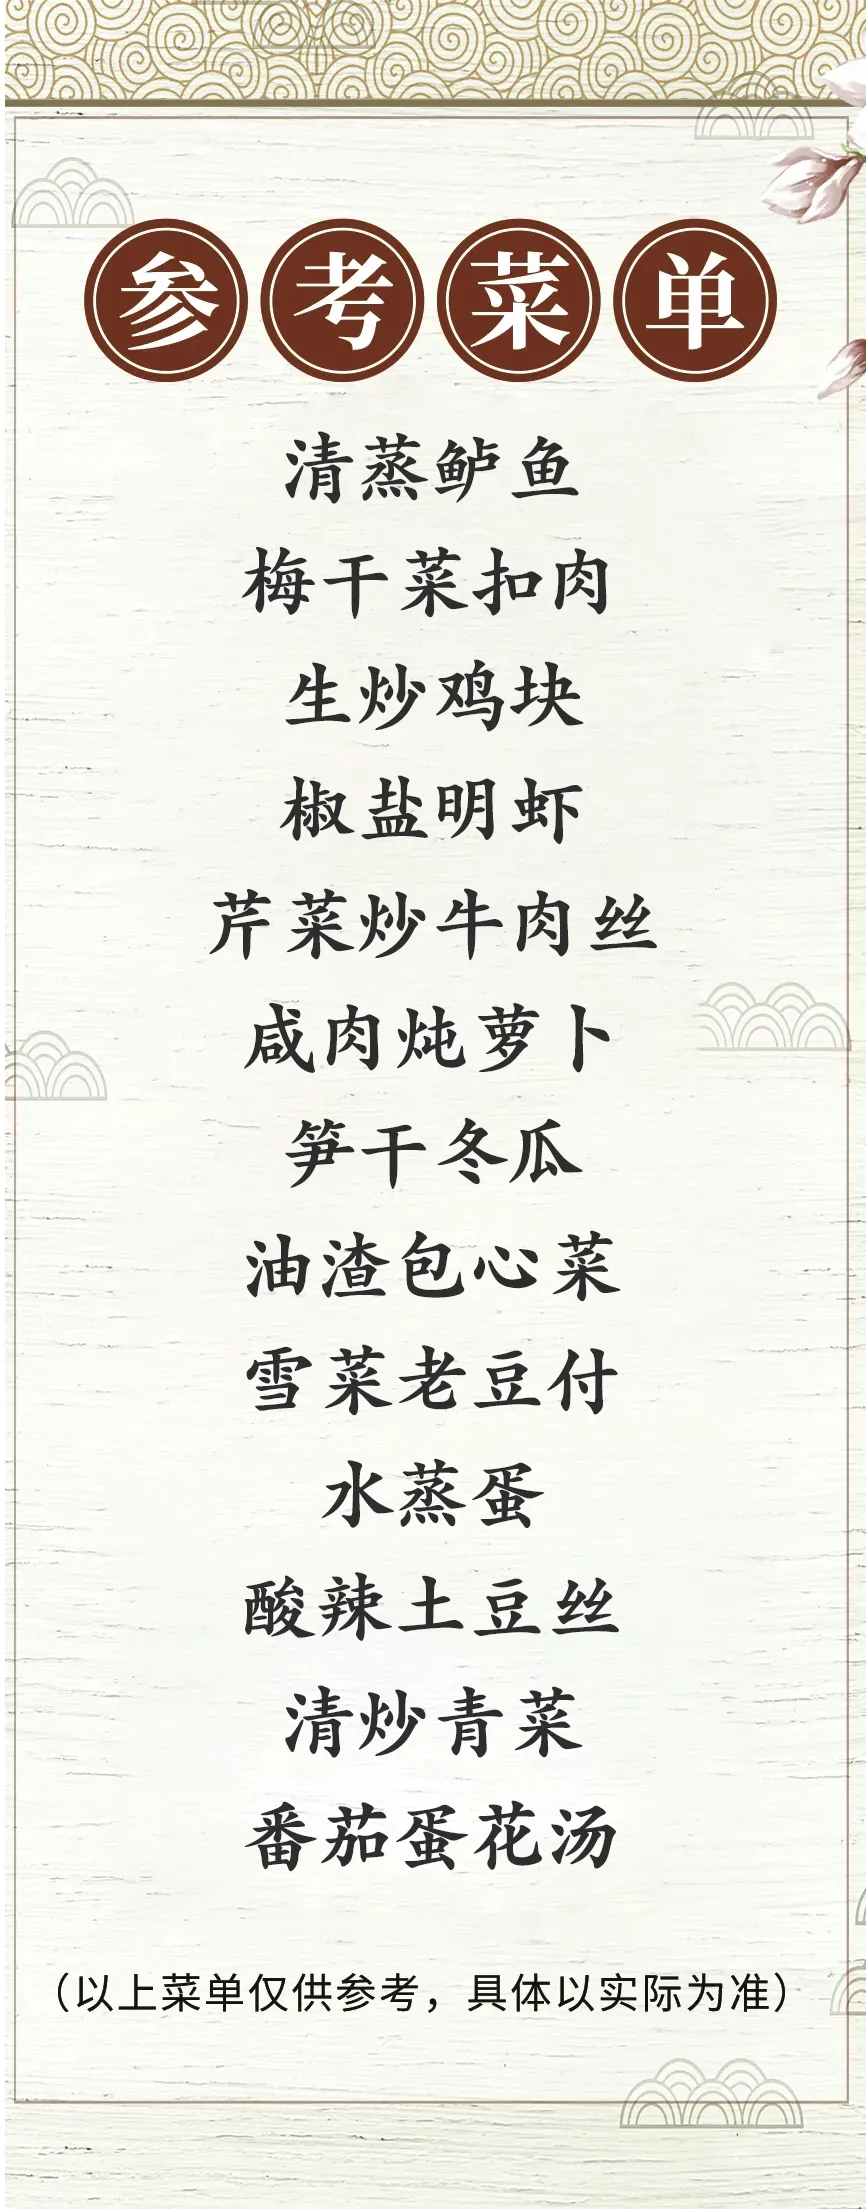 参考菜单
清蒸鲈鱼
梅干菜扣肉
生炒鸡块
椒盐明虾
芹菜炒牛肉丝
咸肉炖萝卜
笋干冬瓜
油渣包心菜
雪菜老豆付
水蒸蛋
酸辣土豆丝
清炒青菜
番茄蛋花汤
（以上菜单仅供参考，具体以实际为准）